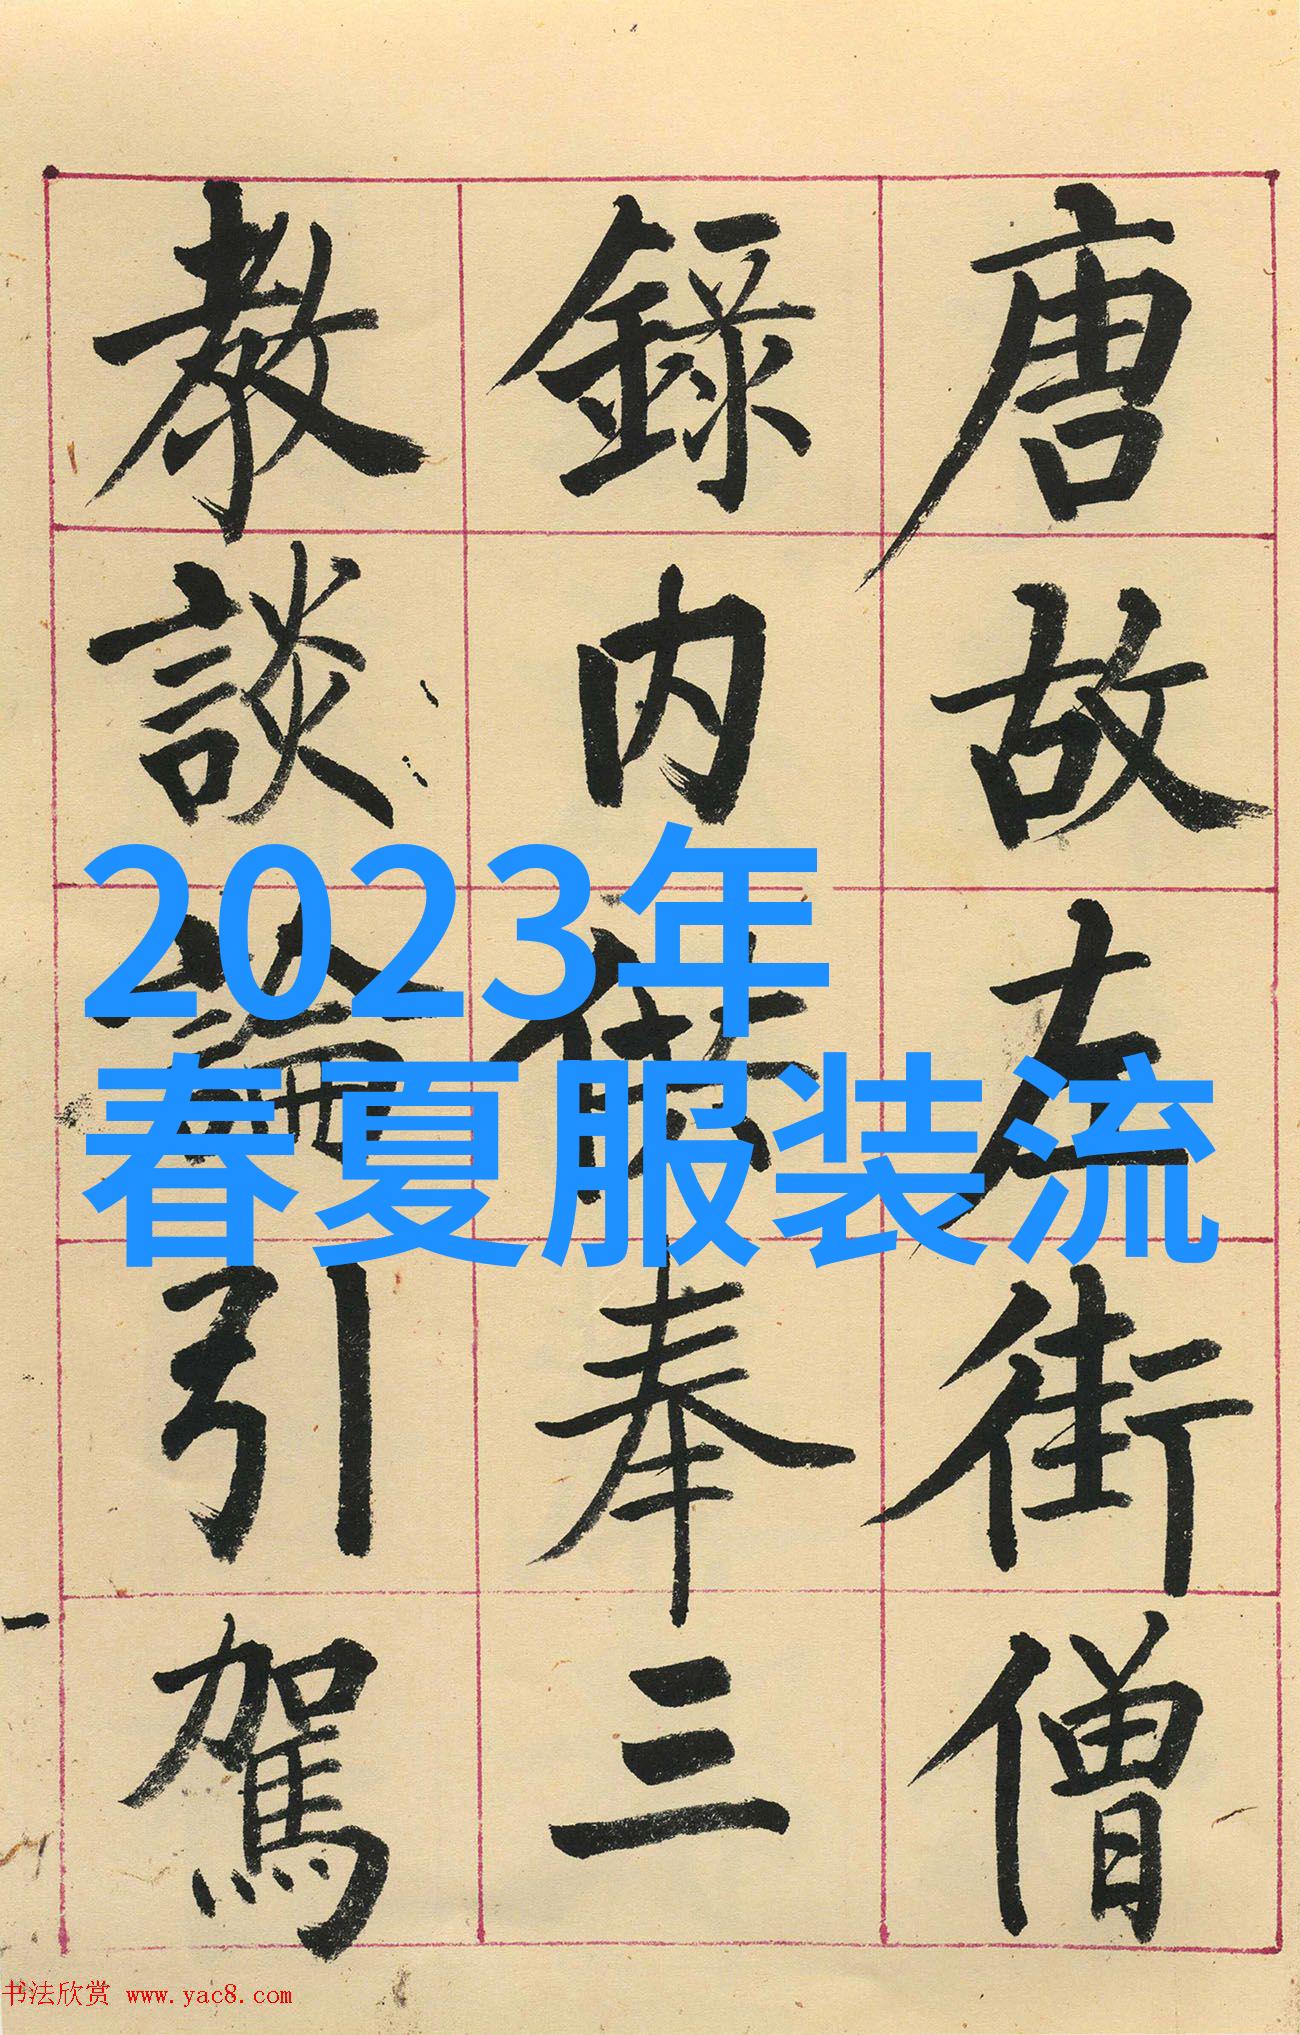 唐故左街僧
錄内供奉三
教談論引駕
2023年
春夏服装流
书法欣赏 www.yac8.com